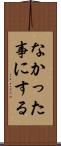 なかった
事にする